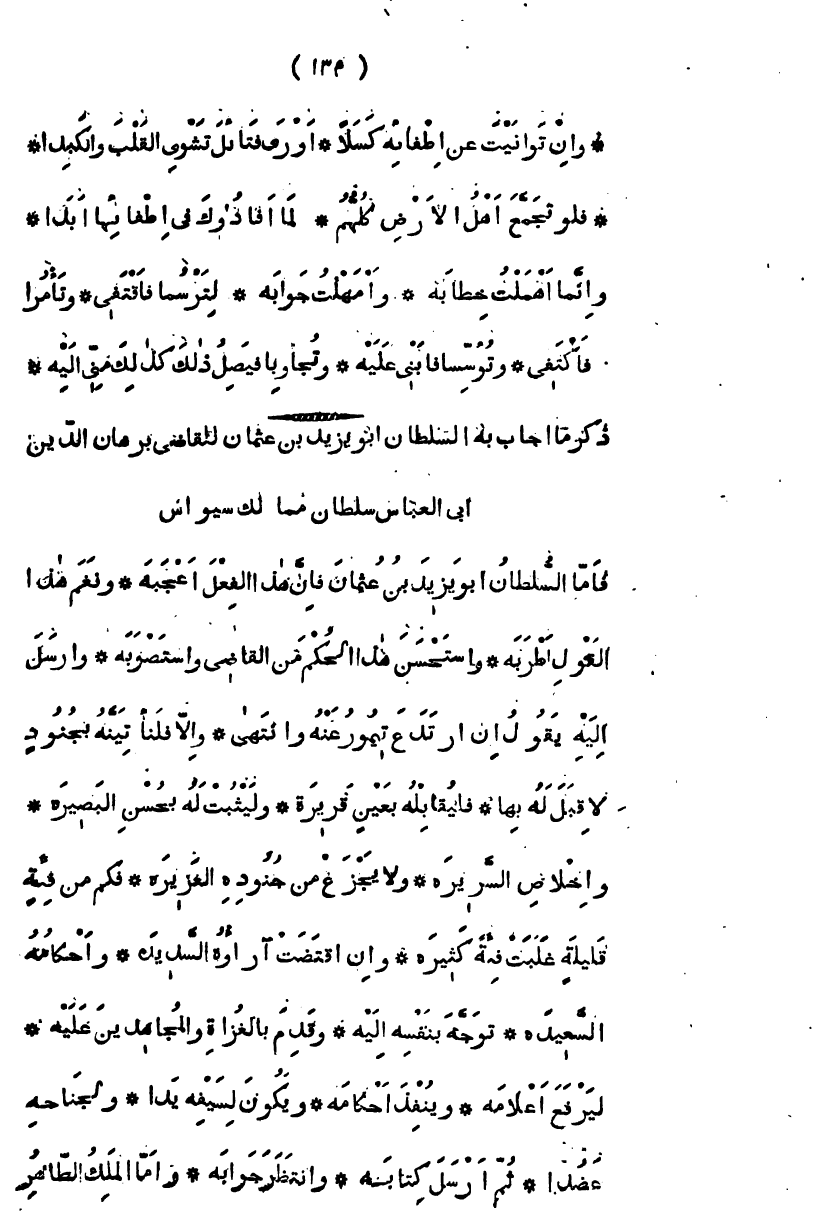 ( ١٣٩ )
* وَاِنْ تَوَانَيْتَ عن اِطْفائِه كَسَلًا * اَوْرَى فَتَائِلَ تَشْوِى القَلْبَ والكَبِدا *
* فلو تَجَمَّعَ اَهْلُ الاَرْضِ كُلُّهُمُ * لَمَا اَفَادُوكَ فى اِطْفائِها اَبَدَا *
وانَّما اَهْمَلْتُ خِطابَه * واَمْهَلْتُ جَوابَه * لِتَرْسُما فاَقْتَفى * وتَأْمُرَا
فاَكْتَفِى * وتُؤَسِّسا فاَبْنِى عَلَيْه * وتُجاوِبا فيَصِلُ ذٰلكَ كذٰلِكَ مِنّى اِلَيْه *
ذكر ما اجاب به السلطان ابو يزيد بن عثمان للقاضى برهان الدّين
ابى العباس سلطان ممالك سيواس
فَاَمّا السُّلطانُ ابو يَزِيدَ بنُ عُثمانَ فاِنَّ هٰذا الفِعْلَ اَعْجَبَه * ونَغَم هٰذا
القَوْلِ اَطْرَبَه * واستَحْسَنَ هٰذا الحُكْمَ مِن القاضِى واستَصْوَبَه * وارسَلَ
اِلَيْهِ يَقُولُ اِن ارتَدَعَ تِيمُورُ عَنْهُ وانْتَهىٰ * واِلّا فلَنأتِيَنَّهُ بجُنُودٍ
لا قِبَلَ لَهُ بِها * فليُقابِلْه بعَيْنٍ قَرِيرَة * وليَثْبُتْ لَهُ بحُسْنِ البَصِيرَه *
واِخْلاصِ السَّرِيرَه * ولا يَجْزَعْ من جُنُودِهِ الغَزِيرَه * فكم من فِئَةٍ
قَلِيلَةٍ غَلَبَتْ فِئَةً كَثِيرَه * وان اقتَضَتْ آراؤُهُ السَّدِيدَه * واَحْكامُهُ
السَّعِيدَه * تَوَجَّهَ بنَفْسِه اِلَيْه * وقَدِمَ بالغُزاةِ والمُجاهِدينَ عَلَيْه *
ليَرْفَعَ اَعْلامَه * ويُنْفِذَ اَحْكامَه * ويَكُونَ لِسَيْفِه يَدا * ولجَناحِهِ
عَضُدا * ثُمَّ اَرْسَلَ كِتابَه * وانتَظَرَ جَوابَه * واَمّا المَلِكُ الظّاهِرُ